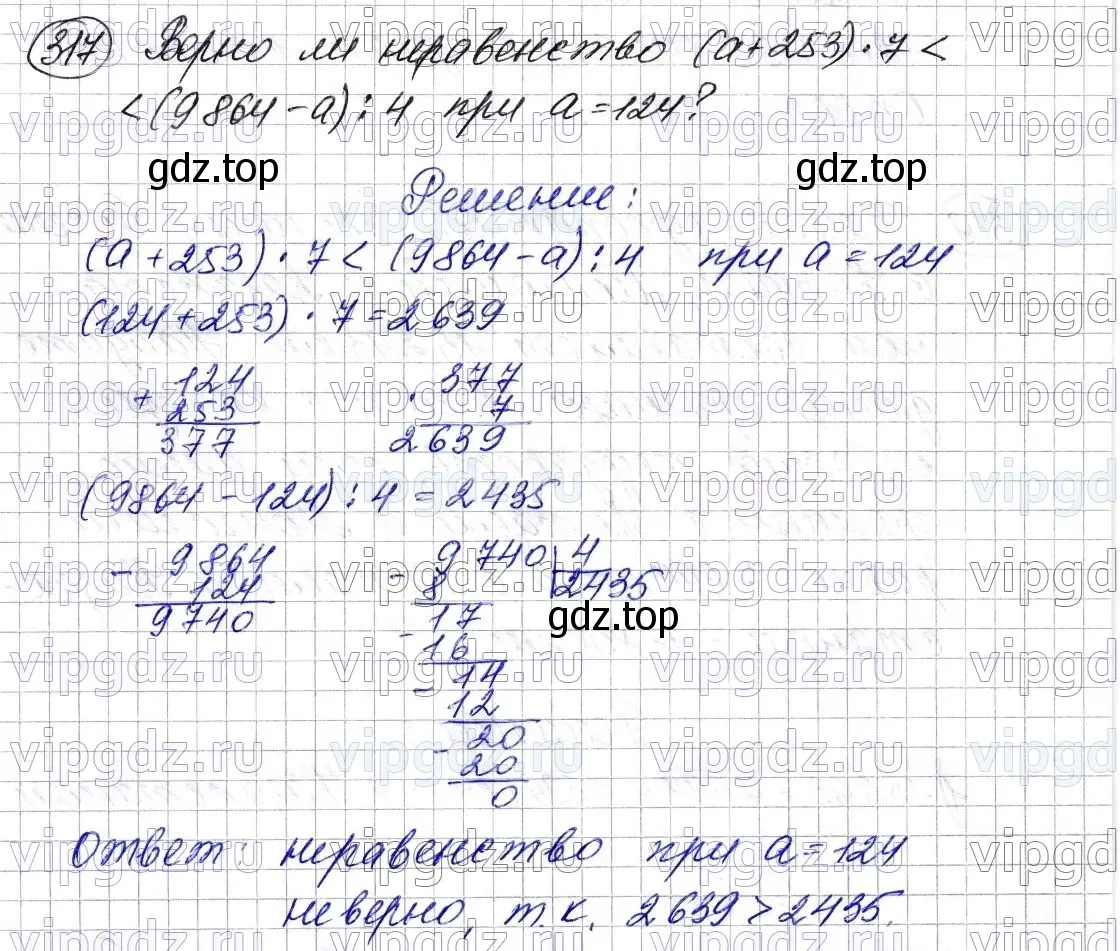 317 Верно ли неравенство (а+253)·7<
<(9864-а):4 при а=124?
gdz.top gdz.top
Решение:
(а+253)·7<(9864-а):4 при а=124
(124+253)·7=2639
+ 124
253
377
· 377
7
2639
(9864-124):4=2435
- 9864
124
9740
- 9740 4
8 2435
gdz.top
- 17
16
- 14
12
- 20
20
0
Ответ: неравенство при а=124
неверно, т.к. 2639>2435.
vipgdz.ru